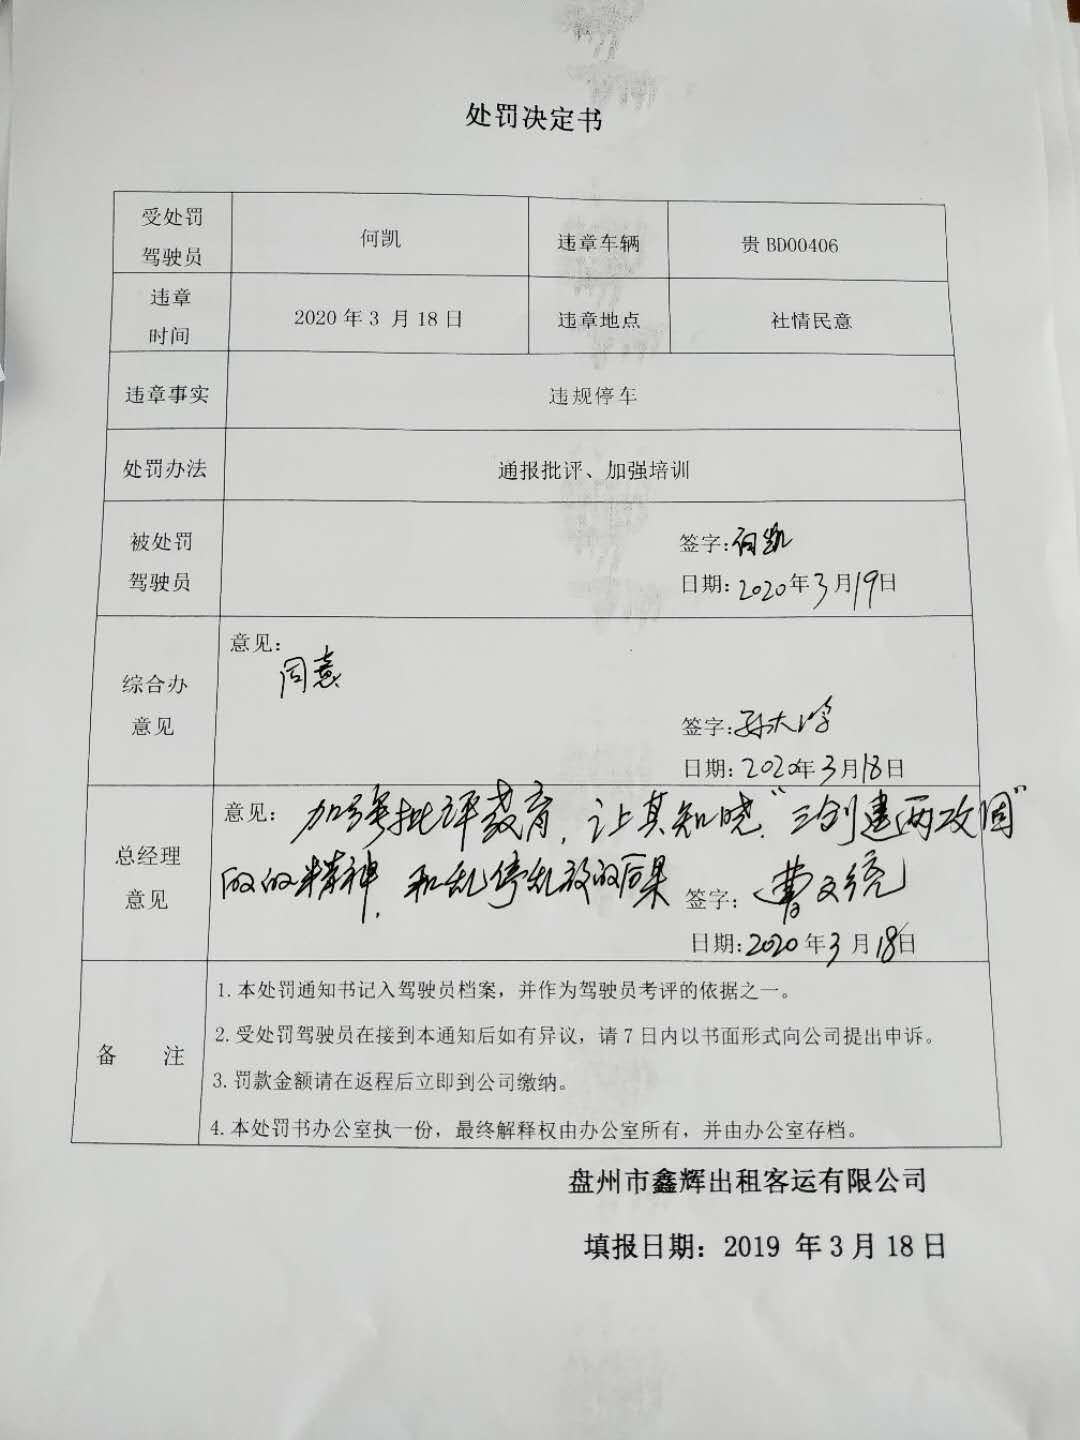 处罚决定书
受处罚
驾驶员
何凯
违章车辆
贵 BD00406
违章
时间
2020 年 3 月 18 日
违章地点
社情民意
违章事实
违规停车
处罚办法
通报批评、加强培训
被处罚
驾驶员
签字:何凯
日期:2020年3月19日
综合办
意见
意见:
同意
签字:孙大
日期:2020年3月18日
总经理
意见
意见: 加强批评教育，让其知晓"三创建两攻固"
的的精神，和乱停乱放的后果
签字: 曹文
日期:2020年3月18日
备 注
1.本处罚通知书记入驾驶员档案，并作为驾驶员考评的依据之一。
2.受处罚驾驶员在接到本通知后如有异议，请 7 日内以书面形式向公司提出申诉。
3.罚款金额请在返程后立即到公司缴纳。
4.本处罚书办公室执一份，最终解释权由办公室所有，并由办公室存档。
盘州市鑫辉出租客运有限公司
填报日期：2019 年 3 月 18 日